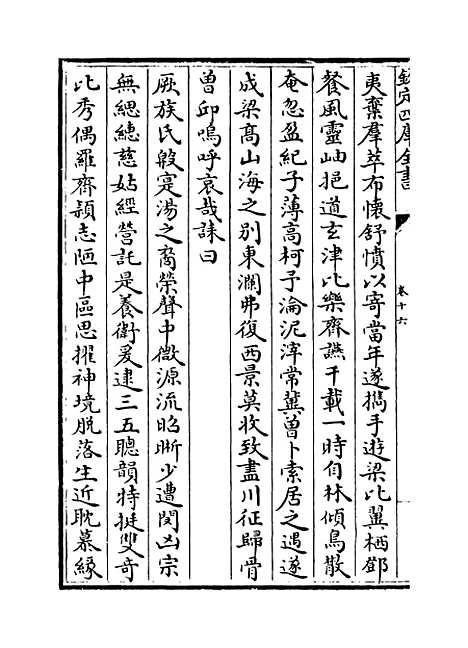 欽定四庫全書
卷十六
夷棄羣萃布懷舒憤以寄當年遂攜手遊梁比翼栖鄧
餐風靈岫挹道玄津比樂齊讌千載一時旬林傾鳥散
奄忽盈紀子薄高柯予淪泥滓常冀曽卜索居之遇遂
成梁髙山海之别東瀾弗復西景莫收致盡川征歸骨
曽邱嗚呼哀哉誄曰
厥族氏殷寔湯之裔榮聲中微源流昭晰少遭閔凶宗
無緦總慈姑經營託是養衛爰逮三五聰韻特挺雙奇
比秀偶羅齊頴志陋中區思擢神境脱落生近耽慕緣